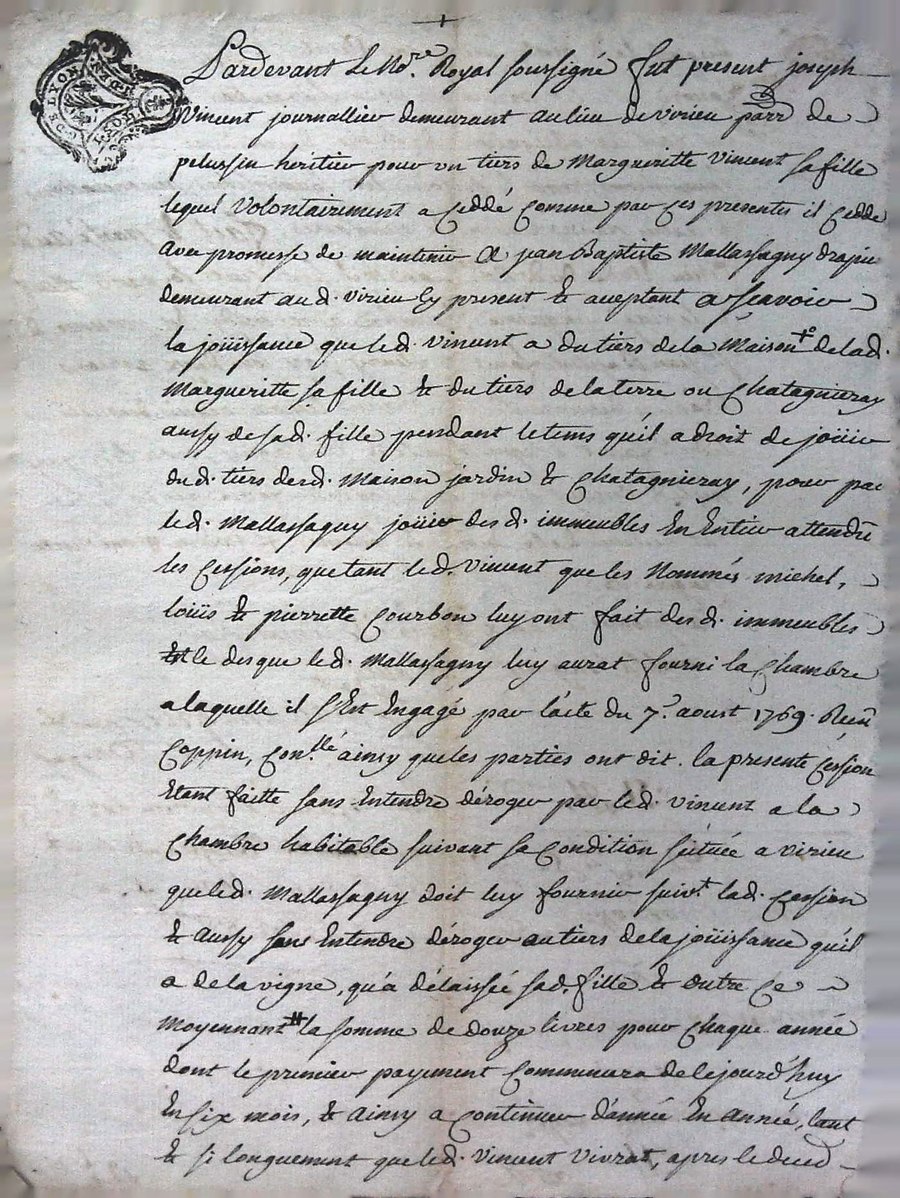 Pardevant Le No.re Royal soussigné fut present joseph
Vincent journallier demeurant au lieu de virieu parr de
pelussin heritier pour un tiers de Margueritte Vincent sa fille
lequel Volontairement a ceddé comme par ces presentes il cedde
avec promesse de maintenir A jean Baptiste Mallassagny drapier
demeurant aud. virieu Cy present et aceptant a sçavoir
la joüissance que led. vincent a du tiers de la Maison de lad.
Margueritte sa fille et du tiers de la terre ou Chatagnieray
aussy de sad. fille pendant le tems qu'il a droit de joüir
dud. tiers desd. Maison jardin et Chatagnieray, pour par
led. Mallassagny joüir des d. immeubles En Entier attendu
les cessions, que tant led. vincent que les Nommés michel,
loüis et pierrette Courbon luy ont fait des d. immeubles
et le des que led. Mallassagny luy aurat fourni la Chambre
a laquelle il s'Est Engagé par l'acte du 7.e aoust 1769. Reçu
Coppin, Con.llé ainsy que les parties ont dit. la presente Cession
Etant faitte sans Entendre déroger par led. vincent a la
chambre habitable suivant sa Condition scituée a virieu
que led. Mallassagny doit luy fournir suiv.t lad. Cession
et aussy sans Entendre déroger au tiers de la joüissance qu'il
a de la vigne, qu'a délaissée sad. fille et outre Ce
Moyennant la somme de douze livres pour chaque année
dont le premier payement Commencera de cejourd'huy
En six mois, et ainsy a continuer d'année En année, tant
et si longuement que led. Vincent Vivrat, apres le deced